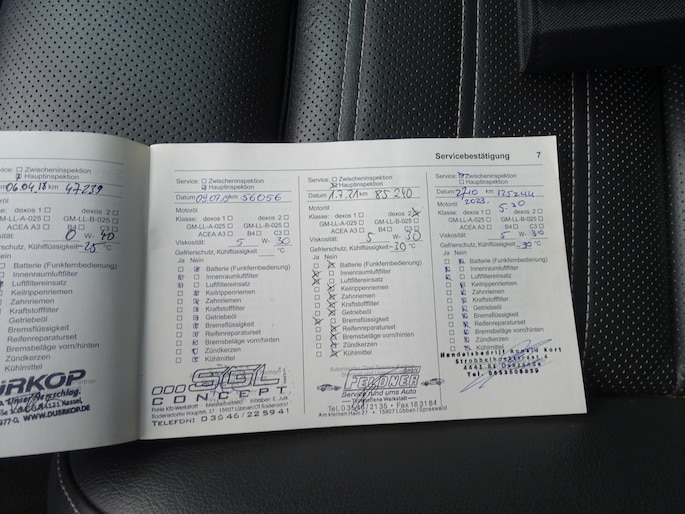 Servicebestätigung 7
Service: Zwischeninspektion
Hauptinspektion
06.04.18 km 47239
Motoröl
dexos 1 dexos 2
GM-LL-A-025 GM-LL-B-025
ACEA A3 B4 C3
0 W- 40
Gefrierschutz, Kühlflüssigkeit -25 °C
Nein
Batterie (Funkfernbedienung)
Innenraumluftfilter
Luftfiltereinsatz
Keilrippenriemen
Zahnriemen
Kraftstofffilter
Getriebeöl
Bremsflüssigkeit
Reifenreparaturset
Bremsbeläge vorn/hinten
Zündkerzen
Kühlmittel
34121 Kassel,
WWW.DUERKOP.DE
Service: Zwischeninspektion
Hauptinspektion
Datum km 56056
Motoröl
Klasse: dexos 1 dexos 2
GM-LL-A-025 GM-LL-B-025
ACEA A3 B4 C3
Viskosität: 5 W- 30
Gefrierschutz, Kühlflüssigkeit °C
Ja Nein
Batterie (Funkfernbedienung)
Innenraumluftfilter
Luftfiltereinsatz
Keilrippenriemen
Zahnriemen
Kraftstofffilter
Getriebeöl
Bremsflüssigkeit
Reifenreparaturset
Bremsbeläge vorn/hinten
Zündkerzen
Kühlmittel
SGL
CONCEPT
Freie Kfz-Werkstatt Meisterbetrieb
TELEFON: 035 46 / 22 59 41
Service: Zwischeninspektion
Hauptinspektion
Datum 1.7.21 km 85 240
Motoröl
Klasse: dexos 1 dexos 2
GM-LL-A-025 GM-LL-B-025
ACEA A3 B4 C3
Viskosität: 5 W- 30
Gefrierschutz, Kühlflüssigkeit -30 °C
Ja Nein
Batterie (Funkfernbedienung)
Innenraumluftfilter
Luftfiltereinsatz
Keilrippenriemen
Zahnriemen
Kraftstofffilter
Getriebeöl
Bremsflüssigkeit
Reifenreparaturset
Bremsbeläge vorn/hinten
Zündkerzen
Kühlmittel
FELDNER
GmbH
Service rund ums Auto
Tel. 0 35 46 / 21 35 • Fax 18 31 84
Am kleinen Hain 27 • 15907 Lübben / Spreewald
Service: Zwischeninspektion
Hauptinspektion
Datum 27 10 km 125244
2023.
Motoröl 5.30
Klasse: dexos 1 dexos 2
GM-LL-A-025 GM-LL-B-025
ACEA A3 B4 C3
Viskosität: 5 W- 30
Gefrierschutz, Kühlflüssigkeit -30 °C
Ja Nein
Batterie (Funkfernbedienung)
Innenraumluftfilter
Luftfiltereinsatz
Keilrippenriemen
Zahnriemen
Kraftstofffilter
Getriebeöl
Bremsflüssigkeit
Reifenreparaturset
Bremsbeläge vorn/hinten
Zündkerzen
Kühlmittel
Handelsbedrijf Ronald Kort